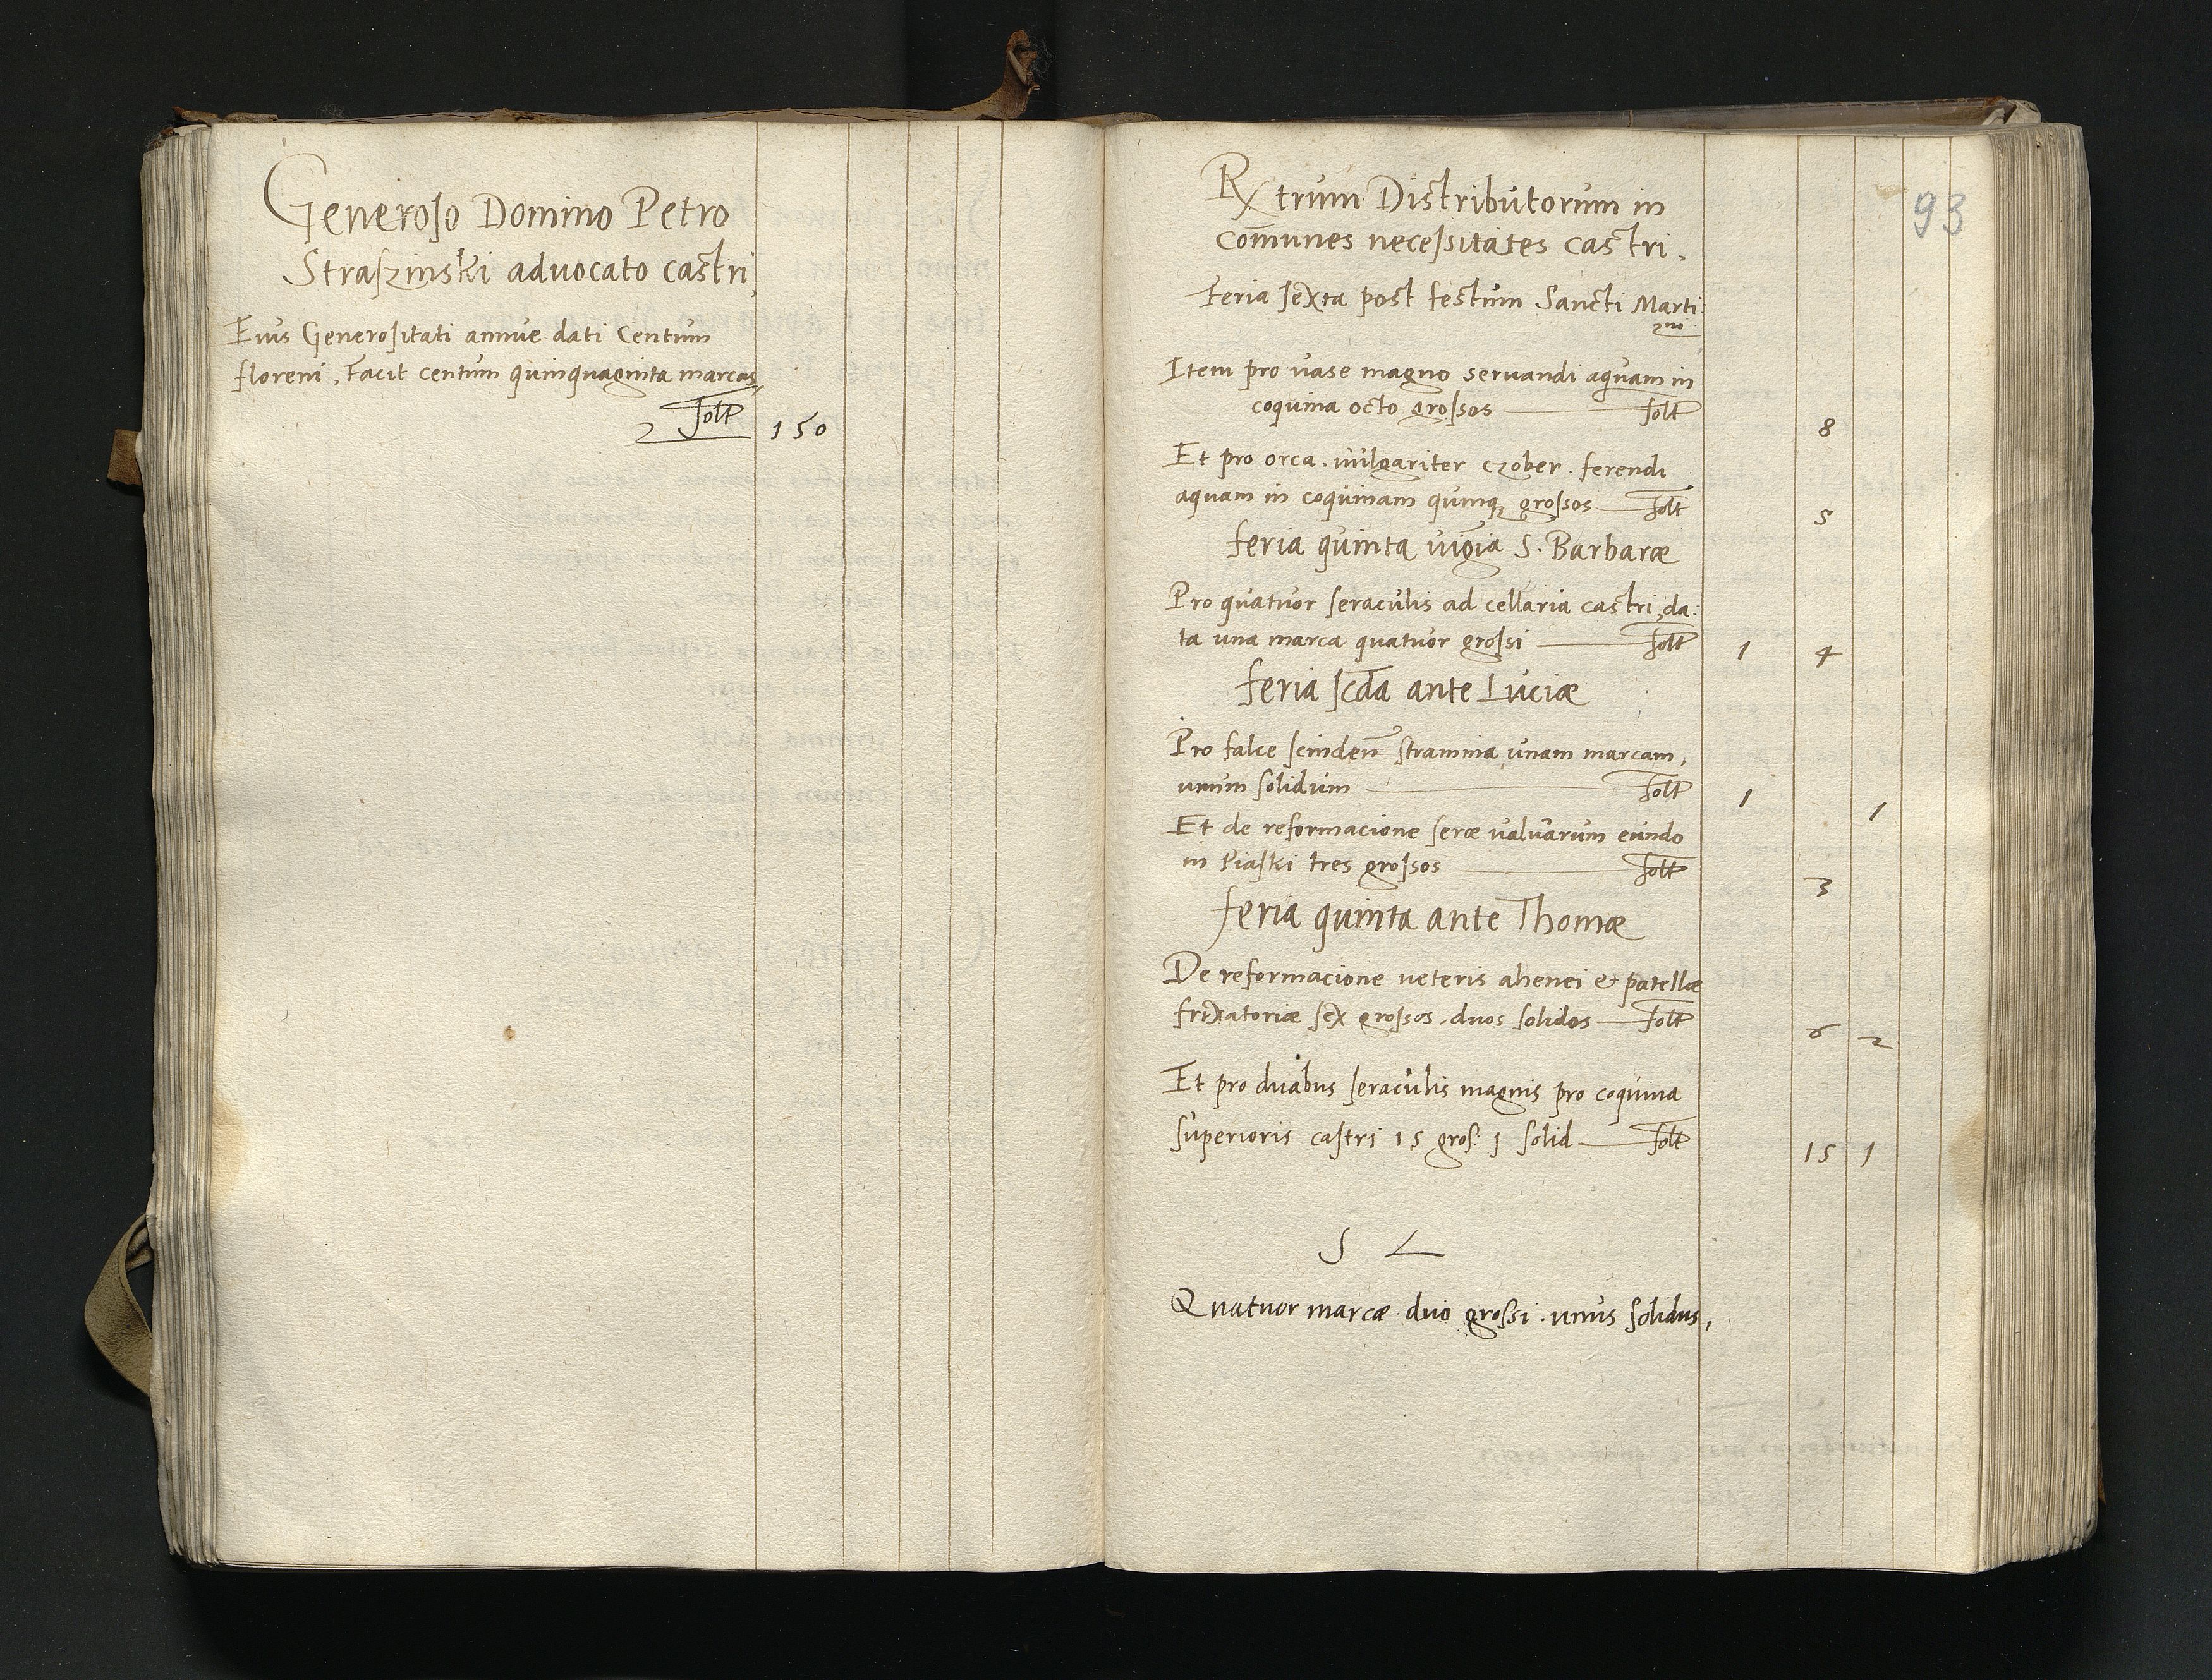 Generoso Domino Petro
Straszinski aduocato castri,
Eius Generositati annue dati Centum
floreni, Facit centum quinquaginta marcas,
solt 150
93
Rxtrum Distributorum in
com̄unes necessitates castri.
Feria sexta post festum Sancti Marti:
no
Item pro vase magno seruandi aquam in
coquina octo grossos — solt 8
Et pro orca. uulgariter czober. ferendi
aquam in coquinam quinq3 grossos — solt 5
feria quinta vigia S. Barbaræ
Pro quatuor seraculis ad cellaria castri, da:
ta una marca quatuor grossi — solt 1 4
feria scđa ante Luciæ
Pro falce scinden̄ stramina unam marcam,
unum solidum — solt 1 1
Et de reformacione seræ valuarum eundo
in Piaski tres grossos — solt 3
feria quinta ante Thomæ
De reformacione ueteris ahenei et patellæ
frixatoriæ sex grossos. duos solidos — solt 6 2
Et pro duabus seraculis magnis pro coquina
superioris castri 15 gros: 1 solid — solt 15 1
S L
Quatuor marcæ. duo grossi. unus solidus,